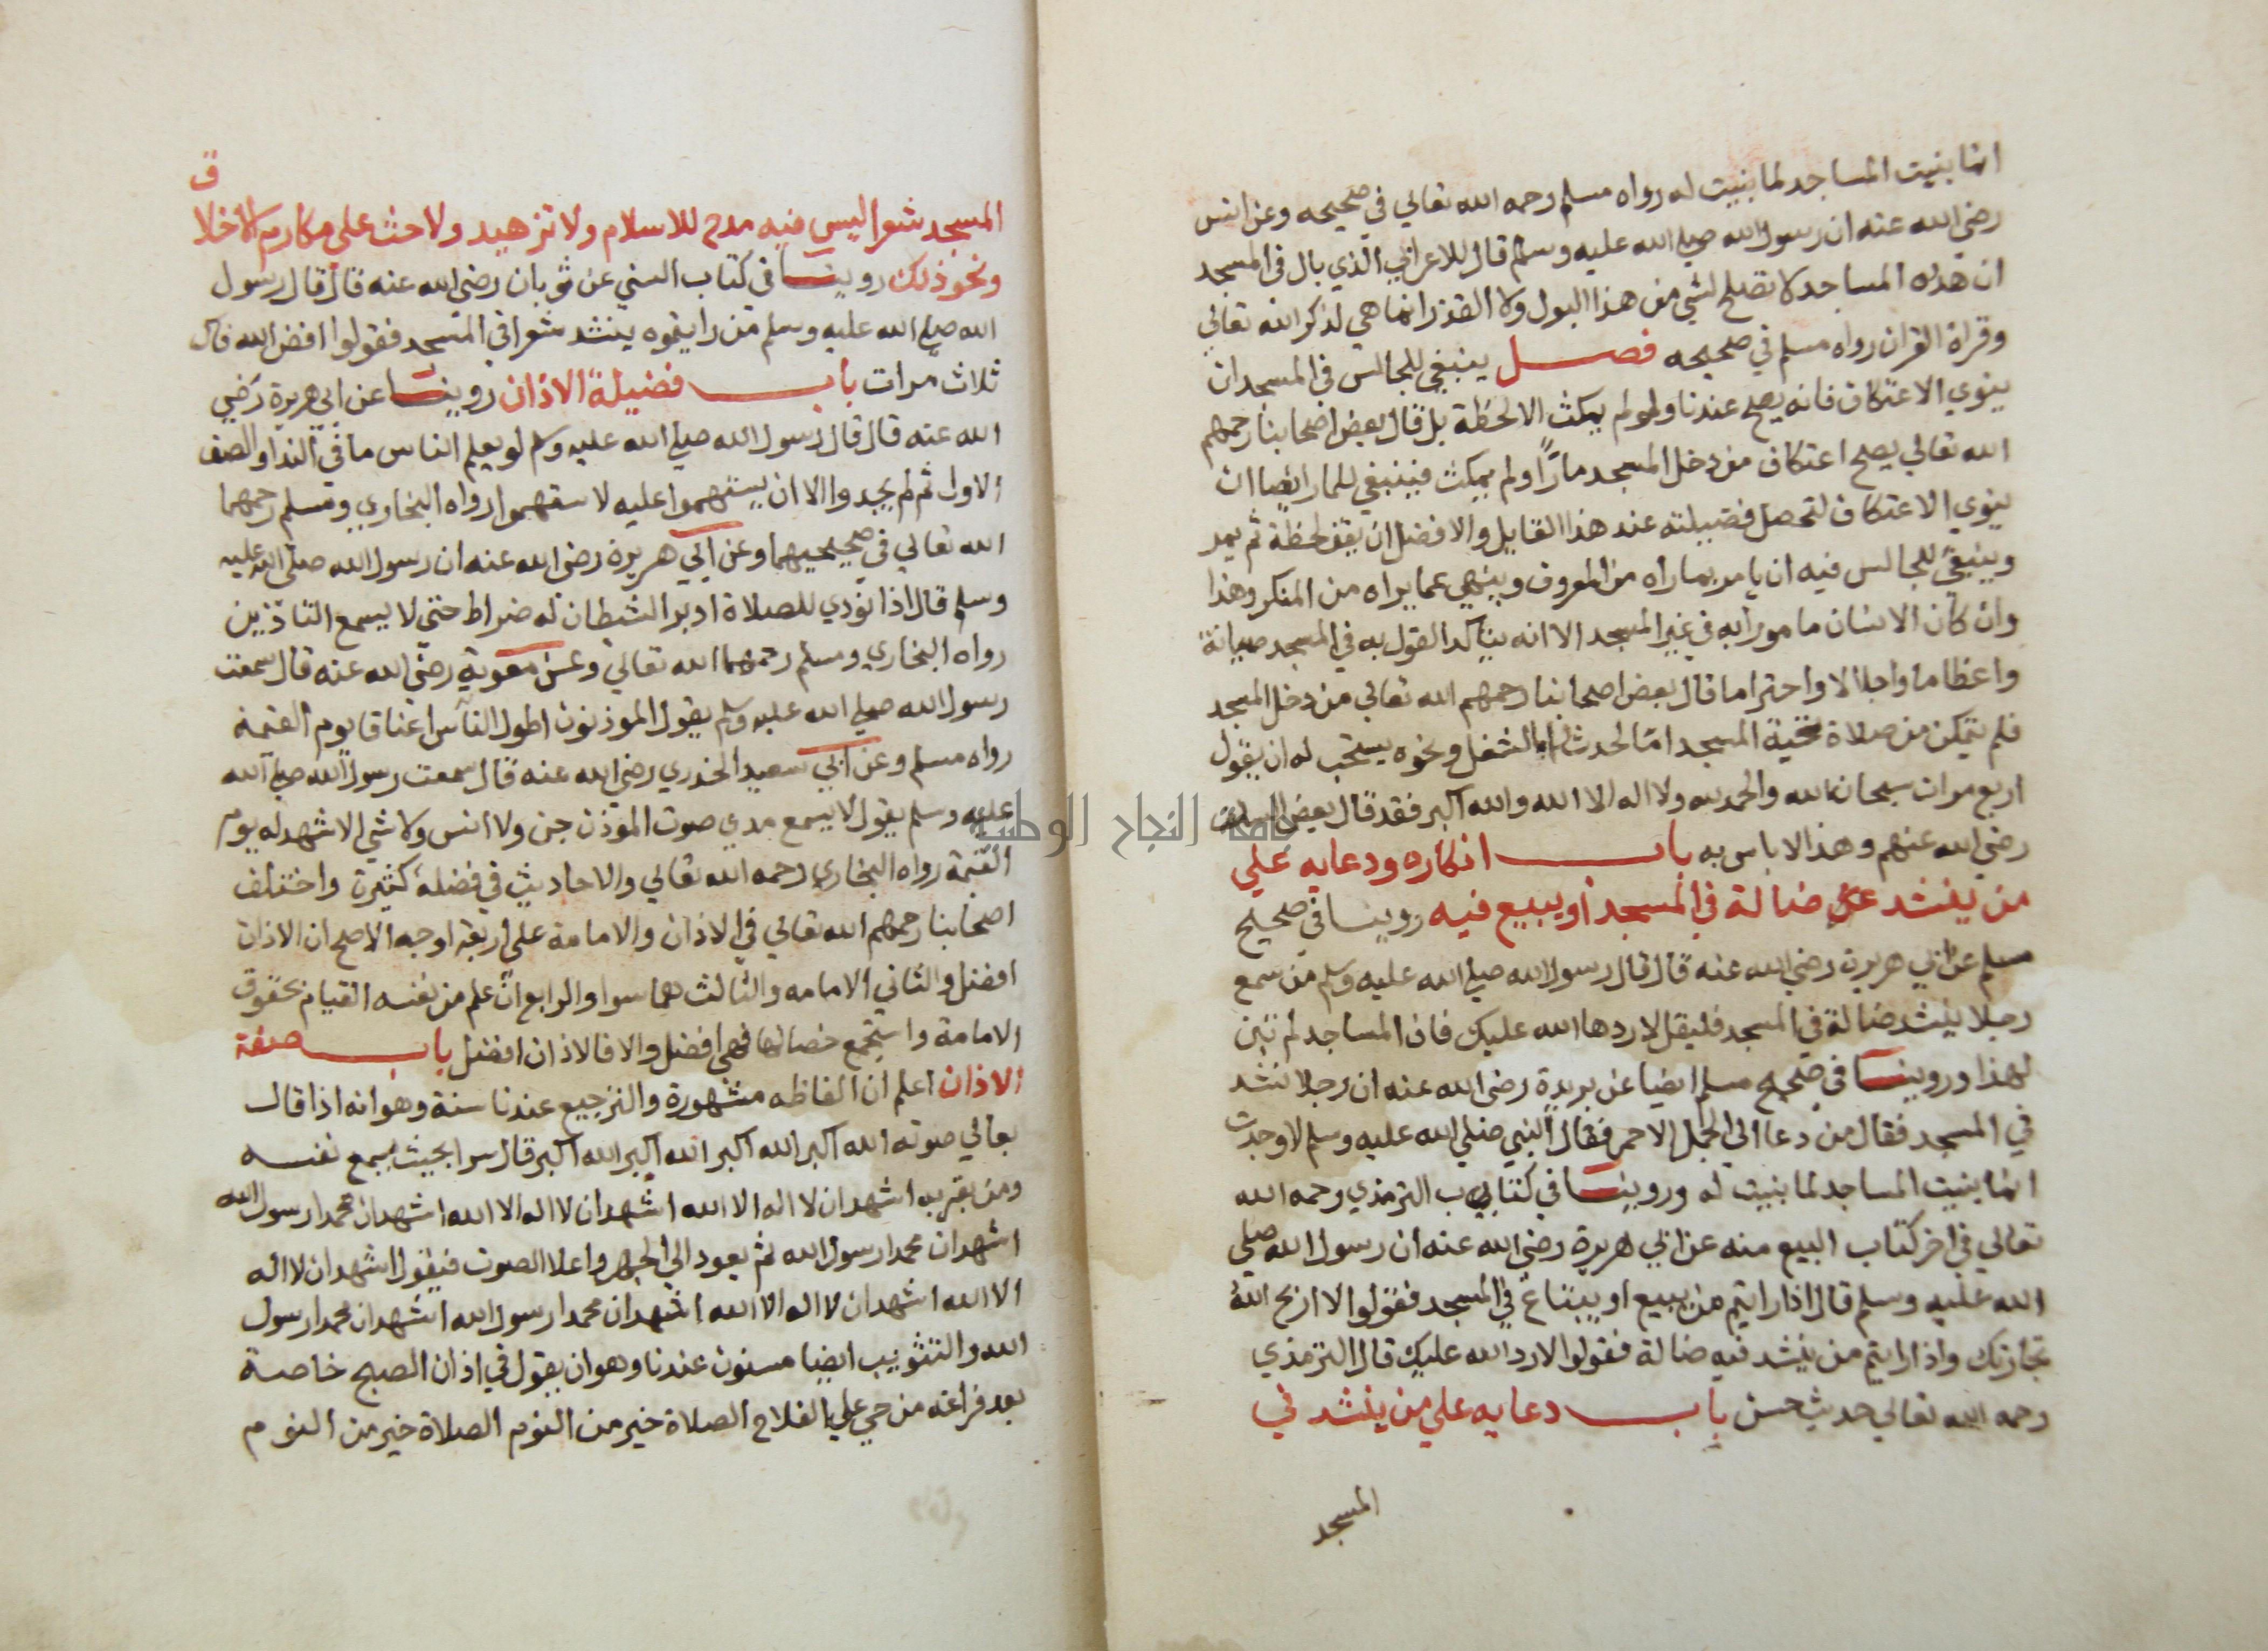 انما بنيت المساجد لما بنيت له رواه مسلم رحمه الله تعالي في صحيحه وعن انس
رضي الله عنه ان رسول الله صلي الله عليه وسلم قال للاعرابي الذي بال في المسجد
ان هذه المساجد لا تصلح لشي من هذا البول ولا القذر انما هي لذكر الله تعالي
وقراة القران رواه مسلم في صحيحه فصل ينبغي للجالس في المسجد ان
ينوي الاعتكاف فانه يصح عندنا ولو لم يمكث الا لحظة بل قال بعض اصحابنا رحمهم
الله تعالي يصح اعتكاف من دخل المسجد مارًا ولم يمكث فينبغي للمار ايضا ان
ينوي الاعتكاف لتحصل فضيلته عند هذا القايل والافضل ان يقف لحظة ثم يمر
وينبغي للجالس فيه ان يامر بما راه من المعروف وينهي عما يراه من المنكر وهذا
وان كان الانسان مامورا به في غير المسجد الا انه يتاكد القول به في المسجد صيانة
واعظاما واجلالا واحتراما قال بعض اصحابنا رحمهم الله تعالي من دخل المسجد
فلم يتمكن من صلاة تحية المسجد اما لحدث او لشغل ونحوه يستحب له ان يقول
اربع مرات سبحان الله والحمد لله ولا اله الا الله والله اكبر فقد قال بعض السلف
رضي الله عنهم وهذا لا باس به باب انكاره ودعايه علي
من ينشد ضالة في المسجد او يبيع فيه روينا في صحيح
مسلم عن ابي هريرة رضي الله عنه قال قال رسول الله صلي الله عليه وسلم من سمع
رجلا ينشد ضالة في المسجد فليقل لا ردها الله عليك فان المساجد لم تبن
لهذا وروينا في صحيح مسلم ايضا عن بريدة رضي الله عنه ان رجلا نشد
في المسجد فقال من دعا الي الجمل الاحمر فقال النبي صلي الله عليه وسلم لا وجدت
انما بنيت المساجد لما بنيت له وروينا في كتاب الترمذي رحمه الله
تعالي في اخر كتاب البيع منه عن ابي هريرة رضي الله عنه ان رسول الله صلي
الله عليه وسلم قال اذا رايتم من يبيع او يبتاع في المسجد فقولوا لا اربح الله
تجارتك واذا رايتم من ينشد فيه ضالة فقولوا لا رد الله عليك قال الترمذي
رحمه الله تعالي حديث حسن باب دعايه علي من ينشد في
المسجد
ق
المسجد شعرا ليس فيه مدح للاسلام ولا تزهيد ولا حث علي مكارم الاخلا
ونحو ذلك روينا في كتاب السني عن ثوبان رضي الله عنه قال قال رسول
الله صلي الله عليه وسلم من رايتموه ينشد شعرا في المسجد فقولوا افض الله فاك
ثلاث مرات باب فضيلة الاذان روينا عن ابي هريرة رضي
الله عنه قال قال رسول الله صلي الله عليه وسلم لو يعلم الناس ما في الندا والصف
الاول ثم لم يجدوا الا ان يستهموا عليه لاستهموا رواه البخاري ومسلم رحمهما
الله تعالي في صحيحيهما وعن ابي هريرة رضي الله عنه ان رسول الله صلي الله عليه
وسلم قال اذا نودي للصلاة ادبر الشيطان له ضراط حتي لا يسمع التاذين
رواه البخاري ومسلم رحمهما الله تعالي وعن معوية رضي الله عنه قال سمعت
رسول الله صلي الله عليه وسلم يقول الموذنون اطول الناس اعناقا يوم القيمة
رواه مسلم وعن ابي سعيد الخدري رضي الله عنه قال سمعت رسول الله صلي الله
عليه وسلم يقول لا يسمع مدي صوت الموذن جن ولا انس ولا شي الا شهد له يوم
القيمة رواه البخاري رحمه الله تعالي والاحاديث في فضله كثيرة واختلف
اصحابنا رحمهم الله تعالي في الاذان والامامة علي اربعة اوجه الاصح ان الاذان
افضل والثاني الامامه والثالث هما سوا والرابع ان علم من نفسه القيام بحقوق
الامامة واستجمع خصالها فهي افضل والا فالاذان افضل باب صفة
الاذان اعلم ان الفاظه مشهورة والترجيع عندنا سنة وهو انه اذا قال
بعالي صوته الله اكبر الله اكبر الله اكبر الله اكبر قال سرا بحيث يسمع نفسه
ومن بقربه اشهد ان لا اله الا الله اشهد ان لا اله الا الله اشهد ان محمدا رسول الله
اشهد ان محمدا رسول الله ثم يعود الي الجهر واعلا الصوت فيقول اشهد ان لا اله
الا الله اشهد ان لا اله الا الله اشهد ان محمدا رسول الله اشهد ان محمدا رسول
الله والتثويب ايضا مسنون عندنا وهو ان يقول في اذان الصبح خاصة
بعد فراغه من حي علي الفلاح الصلاة خير من النوم الصلاة خير من النوم
جامعة النجاح الوطنية